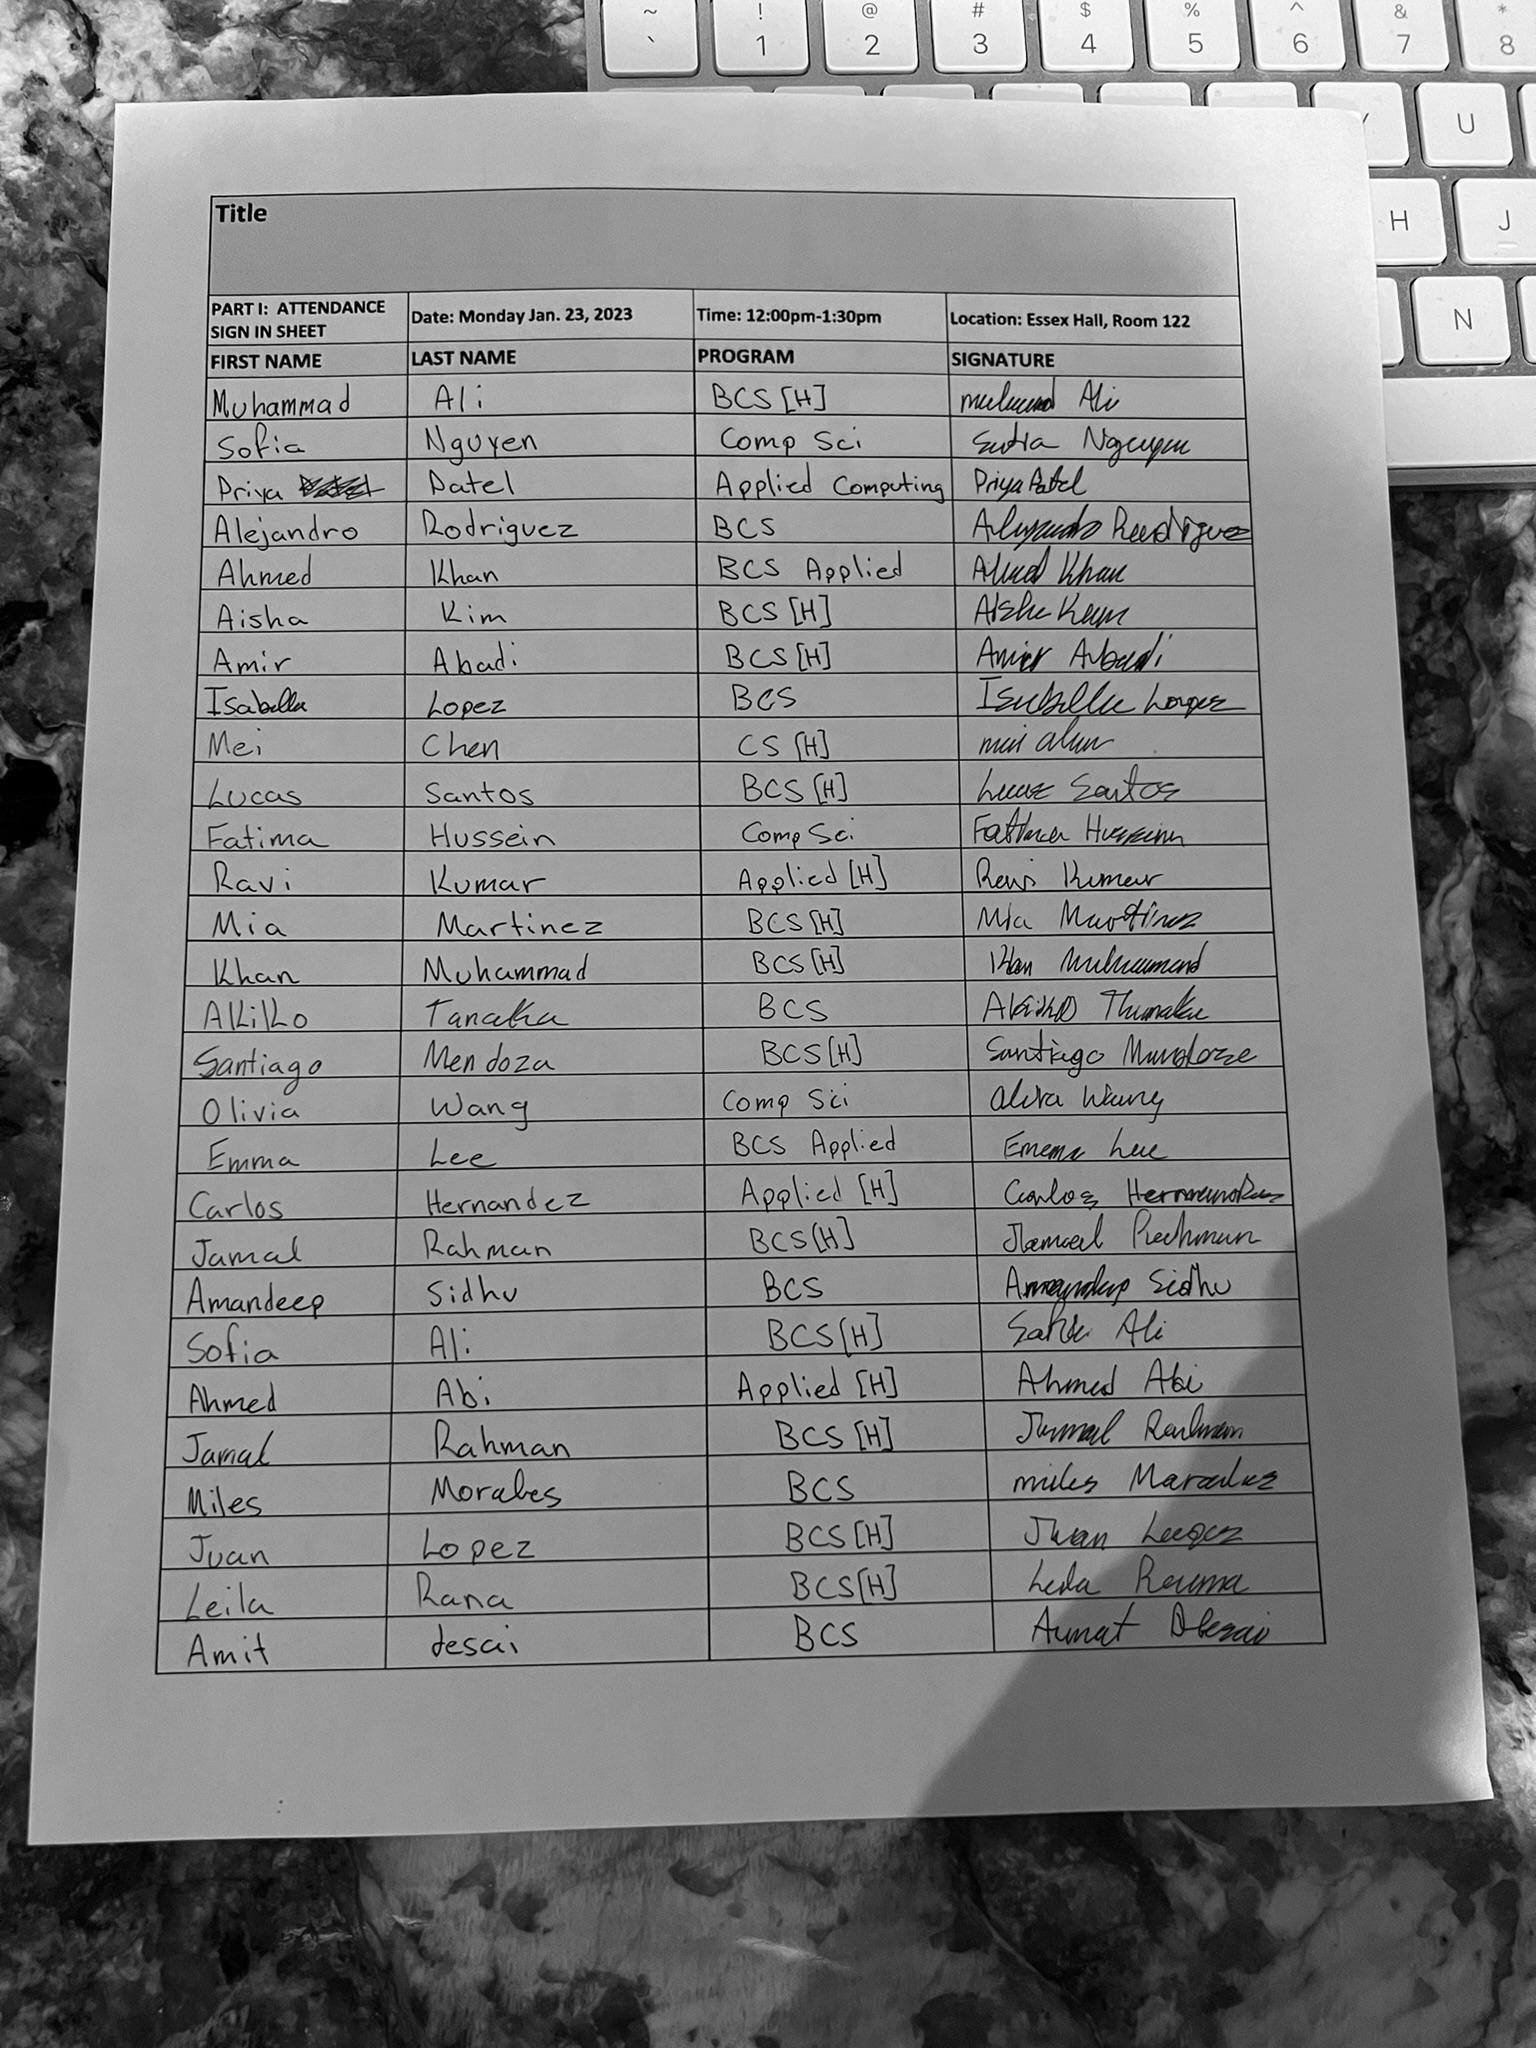 ~ ! @ # $ % ^ & *
` 1 2 3 4 5 6 7 8
U
H J
N
Title
PART I: ATTENDANCE SIGN IN SHEET Date: Monday Jan. 23, 2023 Time: 12:00pm-1:30pm Location: Essex Hall, Room 122
FIRST NAME LAST NAME PROGRAM SIGNATURE
Muhammad Ali BCS [H] Ali
Sofia Nguyen Comp Sci
Priya Patel Applied Computing Priya Patel
Alejandro Rodriguez BCS
Ahmed Khan BCS Applied Khan
Aisha Kim BCS [H]
Amir Abadi BCS [H] Amir Abadi
Isabella Lopez BCS Isabella Lopez
Mei Chen CS [H]
Lucas Santos BCS [H] Lucas Santos
Fatima Hussein Comp Sci Fatima Hussein
Ravi Kumar Applied [H] Ravi Kumar
Mia Martinez BCS [H] Mia Martinez
Khan Muhammad BCS [H] Khan Muhammad
Akiko Tanaka BCS
Santiago Mendoza BCS [H] Santiago
Olivia Wang Comp Sci Wang
Emma Lee BCS Applied Emma Lee
Carlos Hernandez Applied [H] Carlos Hernandez
Jamal Rahman BCS [H] Jamal Rahman
Amandeep Sidhu BCS Amandeep Sidhu
Sofia Ali BCS [H] Ali
Ahmed Abi Applied [H] Ahmed Abi
Jamal Rahman BCS [H] Jamal Rahman
Miles Morales BCS miles
Juan Lopez BCS [H] Juan
Leila Rana BCS [H] Leila
Amit desai BCS